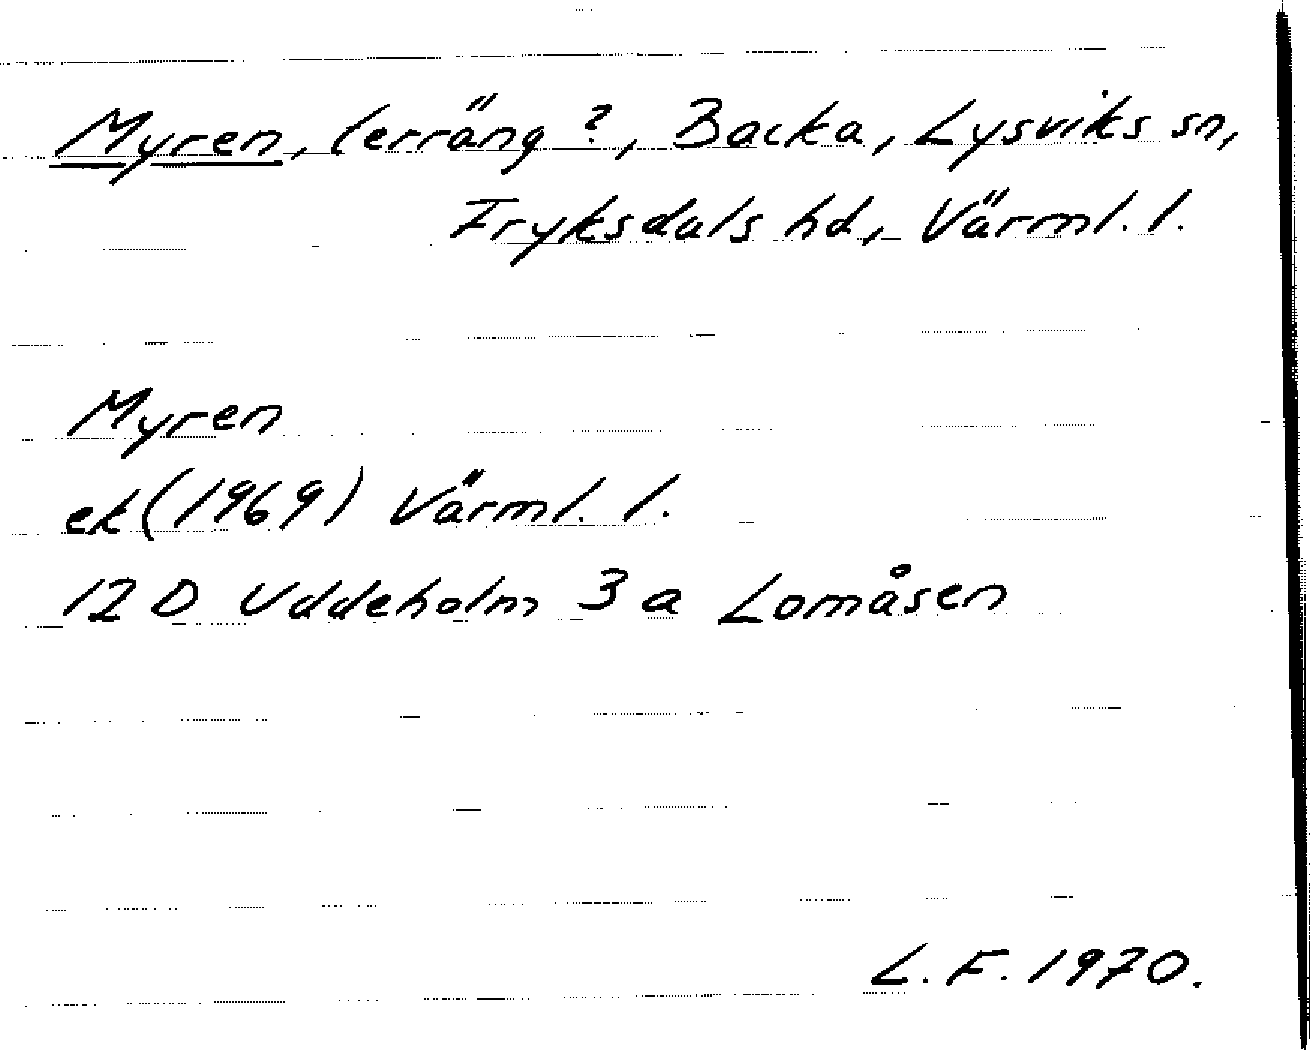 Myren, (erräng?, Backa, Lysviks sn,
Fryksdals hd, Värml. l.
Myren
ek (1969) Värml. l.
12 D Uddeholm 3 a Lomåsen
L. F. 1970.